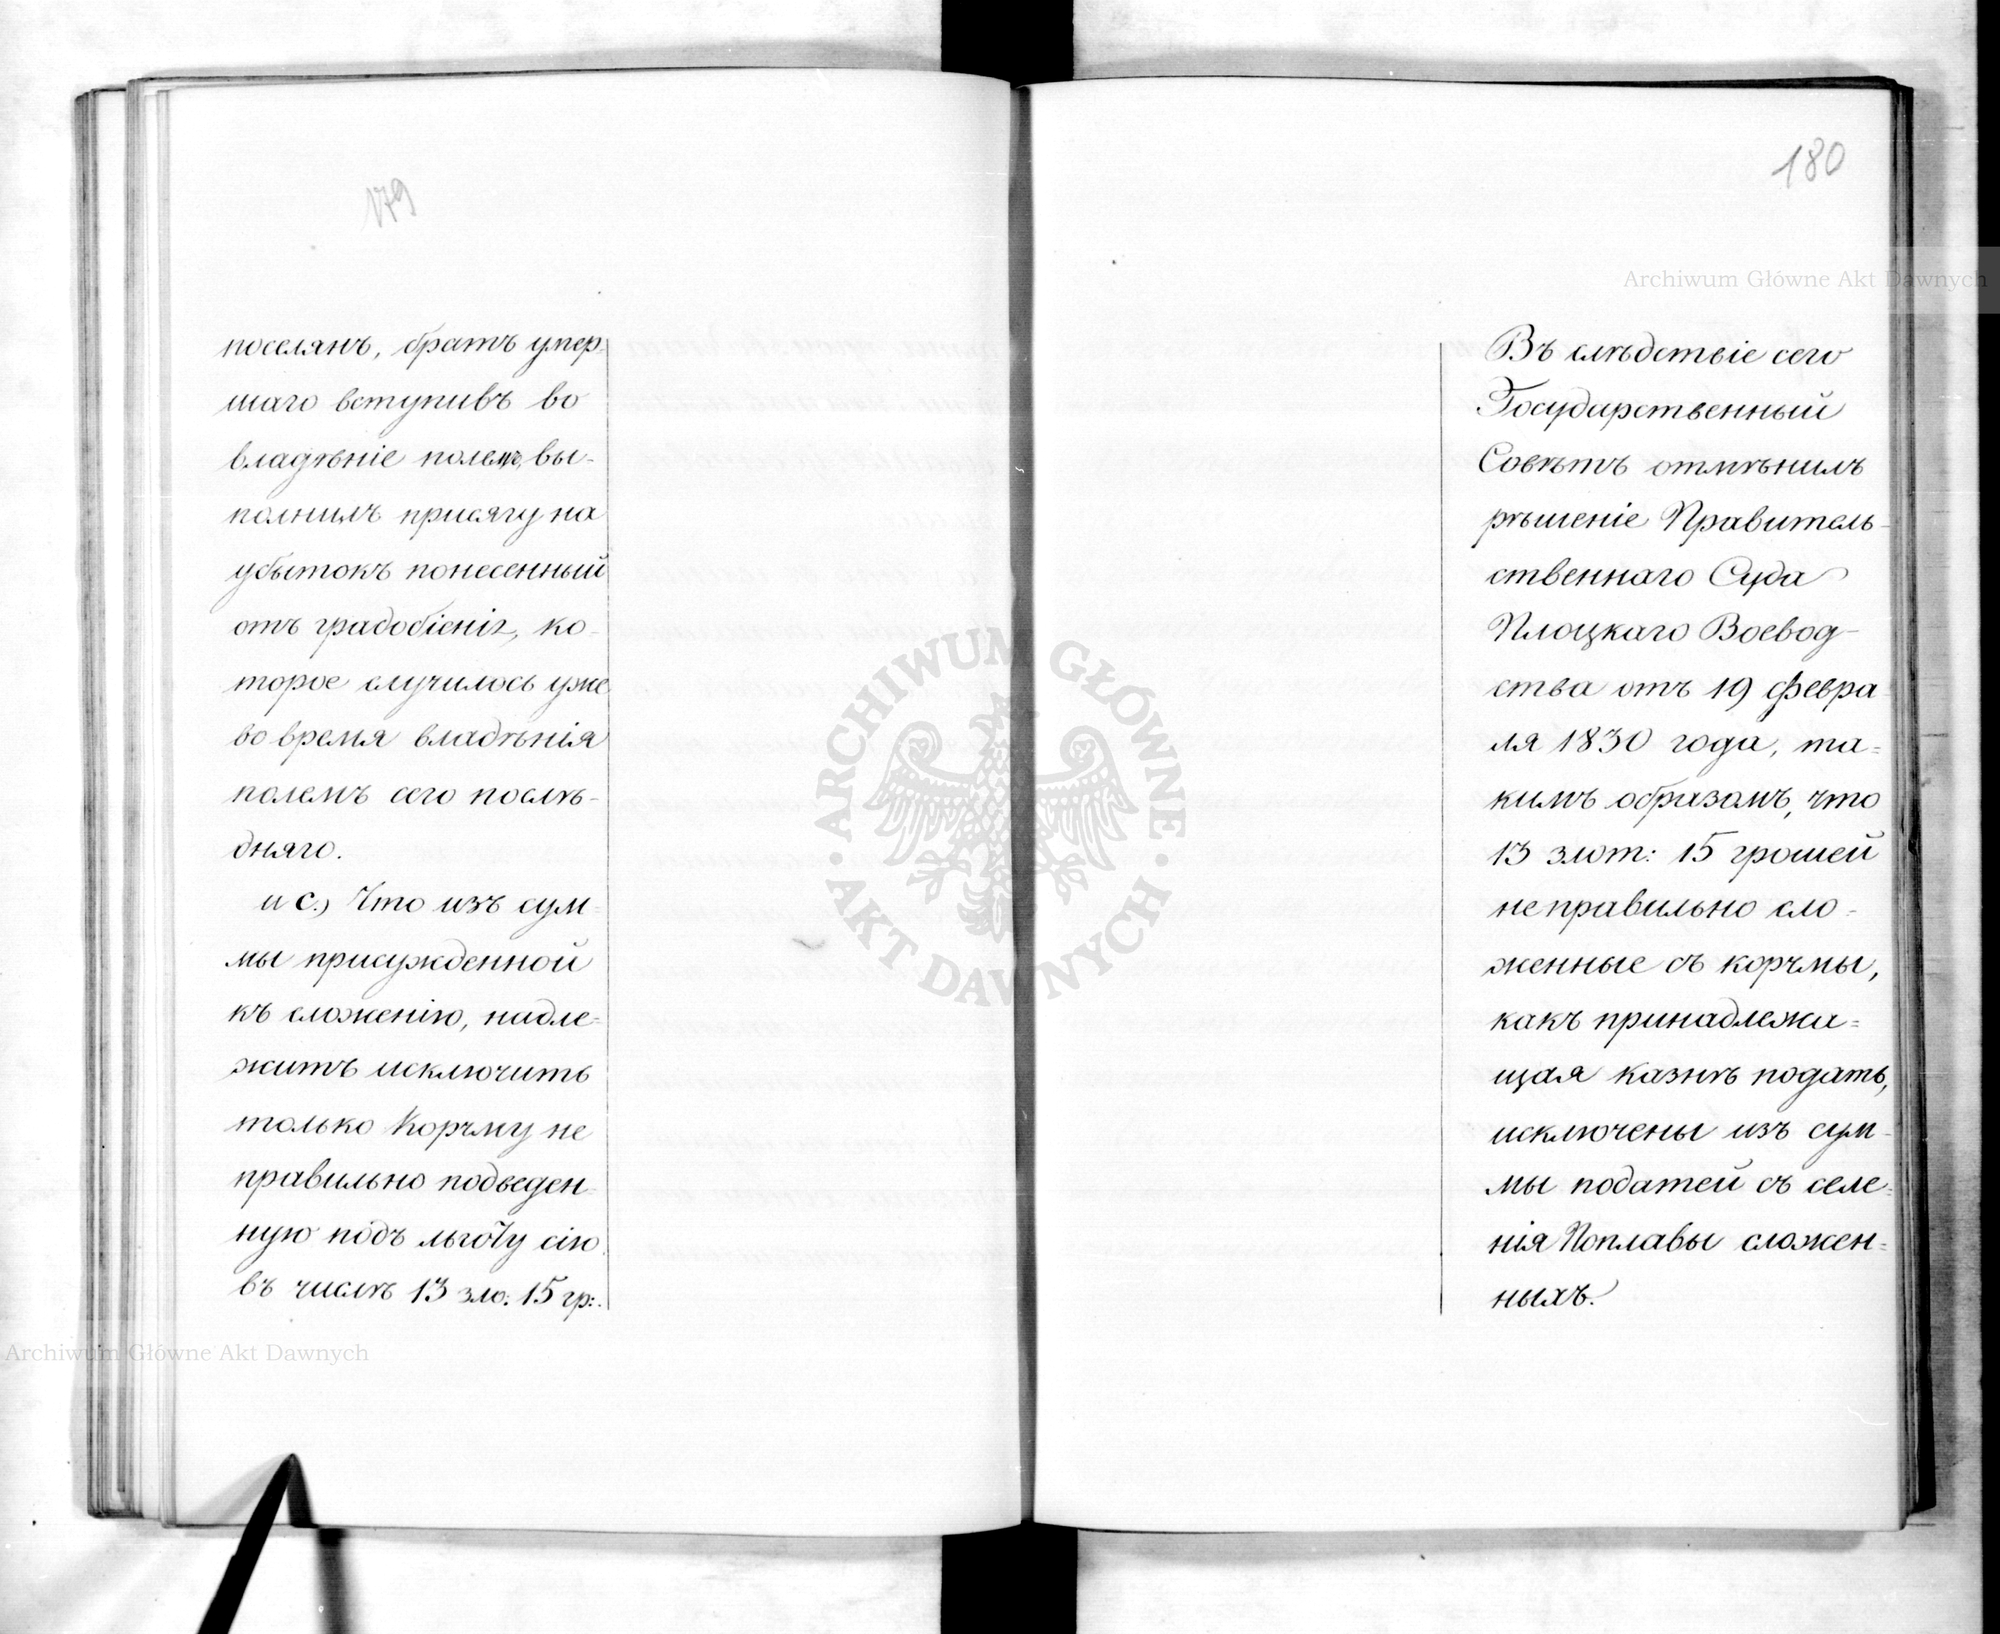 179
поселянъ, братъ умер-
шаго вступивъ во
владѣніе полемъ, вы-
полнилъ присягу на
убытокъ понесенный
отъ градобіенія, ко-
торое случилось уже
во время владѣнія
полемъ сего послѣ-
дняго.
и с.) Что изъ сум-
мы присужденной
къ сложенію, надле-
житъ исключить
только Корчму не
правильно подведен-
ную подъ льготу сію
въ числѣ 13 зло: 15 гр:.
180
Въ слѣдствіе сего
Государственный
Совѣтъ отмѣнилъ
рѣшеніе Правитель-
ственнаго Суда
Плоцкаго Воевод-
ства отъ 19 февра
ля 1830 года, та=
кимъ образомъ, что
13 злот: 15 грошей
неправильно сло-
женные съ корчмы,
какъ принадлежа=
щая казнѣ подать,
исключены изъ сум-
мы податей съ селе-
нія Поплавы сложен=
ныхъ.
Archiwum Główne Akt Dawnych
Archiwum Główne Akt Dawnych
ARCHIWUM GŁÓWNE · AKT DAWNYCH ·